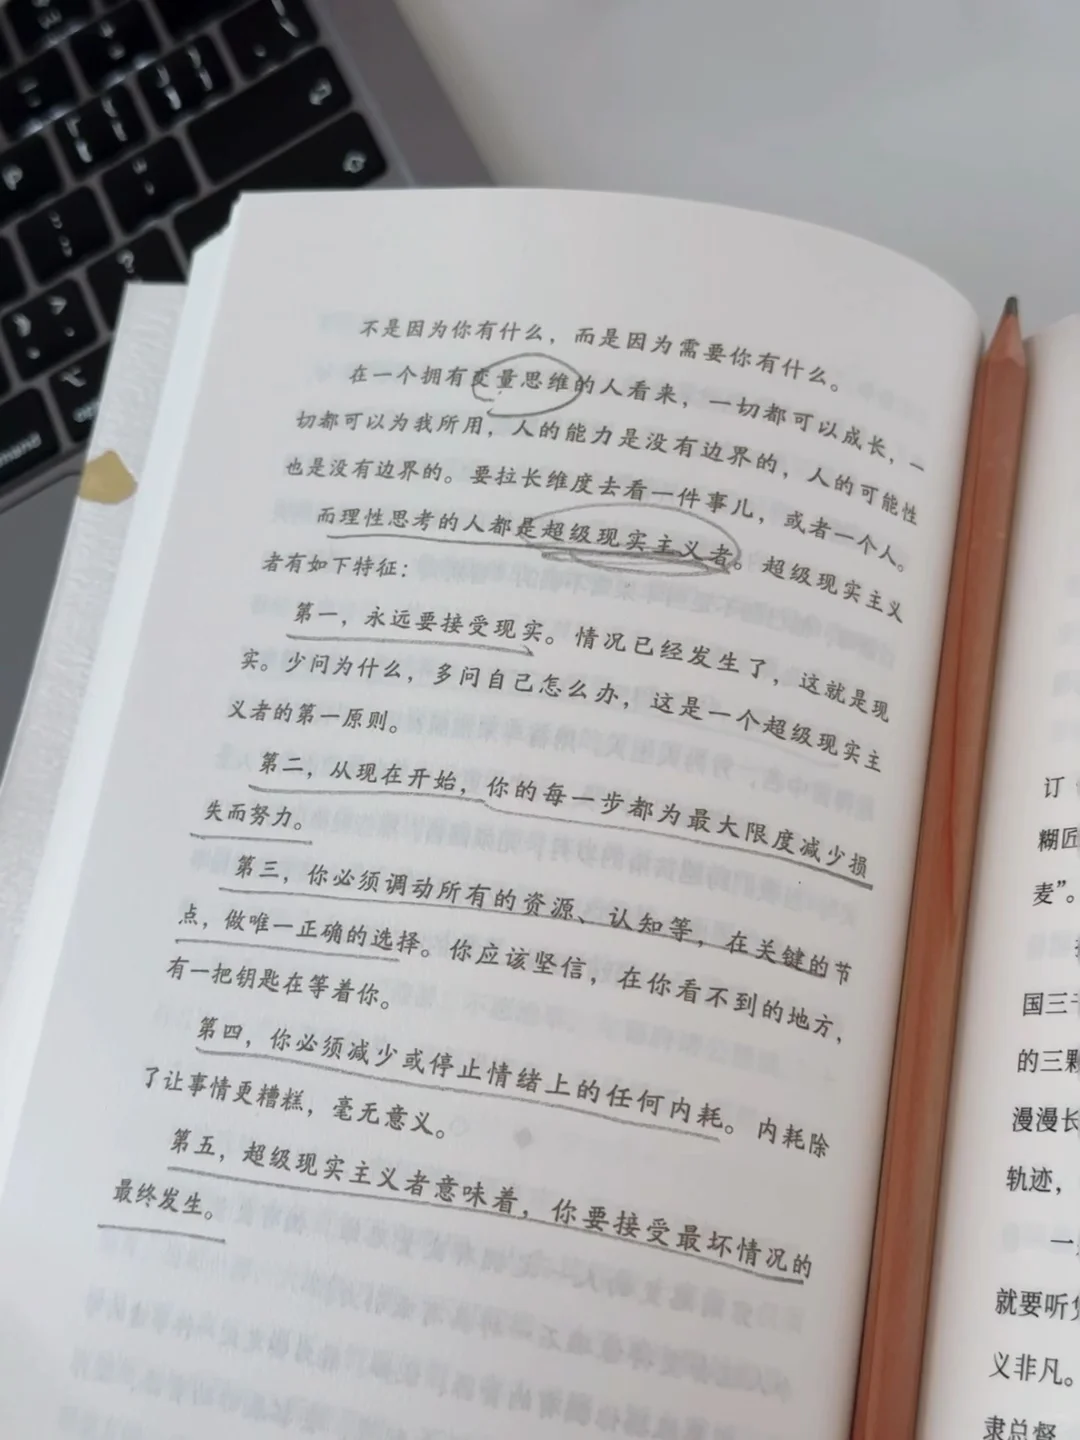 不是因为你有什么，而是因为需要你有什么。
在一个拥有变量思维的人看来，一切都可以成长，一
切都可以为我所用，人的能力是没有边界的，人的可能性
也是没有边界的。要拉长维度去看一件事儿，或者一个人。
而理性思考的人都是超级现实主义者。超级现实主义
者有如下特征：
第一，永远要接受现实。情况已经发生了，这就是现
实。少问为什么，多问自己怎么办，这是一个超级现实主
义者的第一原则。
第二，从现在开始，你的每一步都为最大限度减少损
失而努力。
第三，你必须调动所有的资源、认知等，在关键的节
点，做唯一正确的选择。你应该坚信，在你看不到的地方，
有一把钥匙在等着你。
第四，你必须减少或停止情绪上的任何内耗。内耗除
了让事情更糟糕，毫无意义。
第五，超级现实主义者意味着，你要接受最坏情况的
最终发生。
订
糊匠
麦”。
国三
的三
漫漫长
轨迹，
一
就要听
义非凡。
隶总督